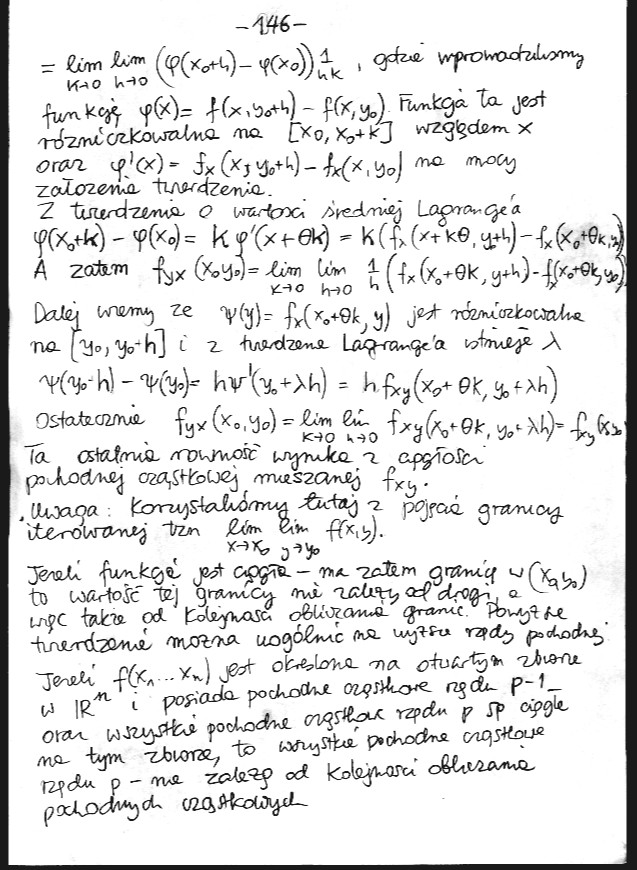 -146-
= lim_{k→0} lim_{h→0} (φ(x₀+h) - φ(x₀)) 1/hk , gdzie wprowadziliśmy
funkcję φ(x) = f(x, y₀+h) - f(x, y₀). Funkcja ta jest
różniczkowalna na [x₀, x₀+k] względem x
oraz φ'(x) = fₓ(x, y₀+h) - fₓ(x, y₀) na mocy
założenia twierdzenia.
Z twierdzenia o wartości średniej Lagrange'a
φ(x₀+k) - φ(x₀) = k φ'(x+θk) = k(fₓ(x+kθ, y₀+h) - fₓ(x₀+θk, y₀))
A zatem f_{yx}(x₀y₀) = lim_{k→0} lim_{h→0} 1/h (fₓ(x₀+θk, y+h) - fₓ(x₀+θk, y₀))
Dalej wiemy że ψ(y) = fₓ(x₀+θk, y) jest różniczkowalna
na [y₀, y₀+h] i z twierdzenia Lagrange'a istnieje λ
ψ(y₀+h) - ψ(y₀) = hψ'(y₀+λh) = h f_{xy}(x₀+θk, y₀+λh)
Ostatecznie f_{yx}(x₀, y₀) = lim_{k→0} lim_{h→0} f_{xy}(x₀+θk, y₀+λh) = f_{xy}(x₀y₀)
Ta ostatnia równość wynika z ciągłości
pochodnej cząstkowej mieszanej f_{xy}.
Uwaga: Korzystaliśmy tutaj z pojęcia granicy
iterowanej tzn lim_{x→x₀} lim_{y→y₀} f(x,y).
Jeżeli funkcja jest ciągła - ma zatem granicę w (x₀,y₀)
to wartość tej granicy nie zależy od drogi, a
więc także od kolejności obliczania granic. Powyższe
twierdzenie można uogólnić na wyższe rzędy pochodnej.
Jeżeli f(x₁...xₙ) jest określona na otwartym zbiorze
w ℝⁿ i posiada pochodne cząstkowe rzędu p-1
oraz wszystkie pochodne cząstkowe rzędu p są ciągłe
na tym zbiorze, to wszystkie pochodne cząstkowe
rzędu p - nie zależą od kolejności obliczania
pochodnych cząstkowych